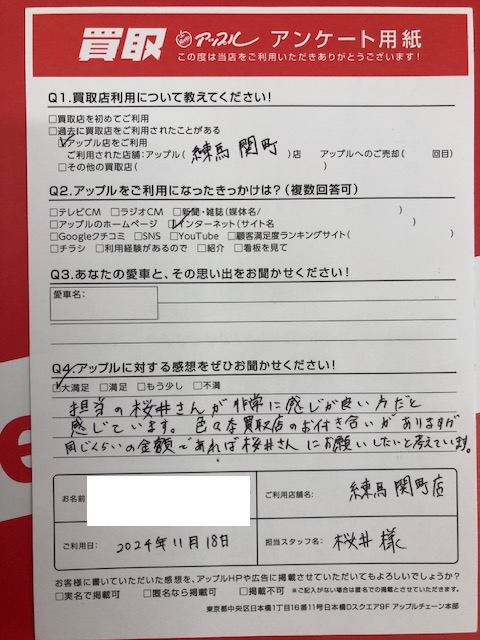 買取 アップル アンケート用紙
この度は当店をご利用いただきありがとうございます!
Q1.買取店利用について教えてください!
□買取店を初めてご利用
□過去に買取店をご利用されたことがある
☑アップル店をご利用
ご利用された店舗:アップル( 練馬 関町 )店 アップルへのご売却( 回目)
□その他の買取店( )
Q2.アップルをご利用になったきっかけは?(複数回答可)
□テレビCM □ラジオCM □新聞・雑誌(媒体名/ )
□アップルのホームページ ☑インターネット(サイト名 )
□Googleクチコミ □SNS □YouTube □顧客満足度ランキングサイト( )
□チラシ □利用経験があるので □紹介 □看板を見て
Q3.あなたの愛車と、その思い出をお聞かせください!
愛車名:
Q4.アップルに対する感想をぜひお聞かせください!
☑大満足 □満足 □もう少し □不満
担当の桜井さんが非常に感じが良い方だと
感じています。色々な買取店のお付き合いがありますが
同じくらいの金額であれば桜井さんにお願いしたいと考えています。
お名前
ご利用店舗名: 練馬 関町店
ご利用日: 2024年11月18日
担当スタッフ名: 桜井 様
お客様に書いていただいた感想を、アップルHPや広告に掲載させていただいてもよろしいでしょうか?
□実名で掲載可 □匿名なら掲載可 □掲載不可 ※ご記入がない場合は匿名での掲載とさせていただきます。
東京都中央区日本橋1丁目16番11号日本橋Dスクエア9F アップルチェーン本部